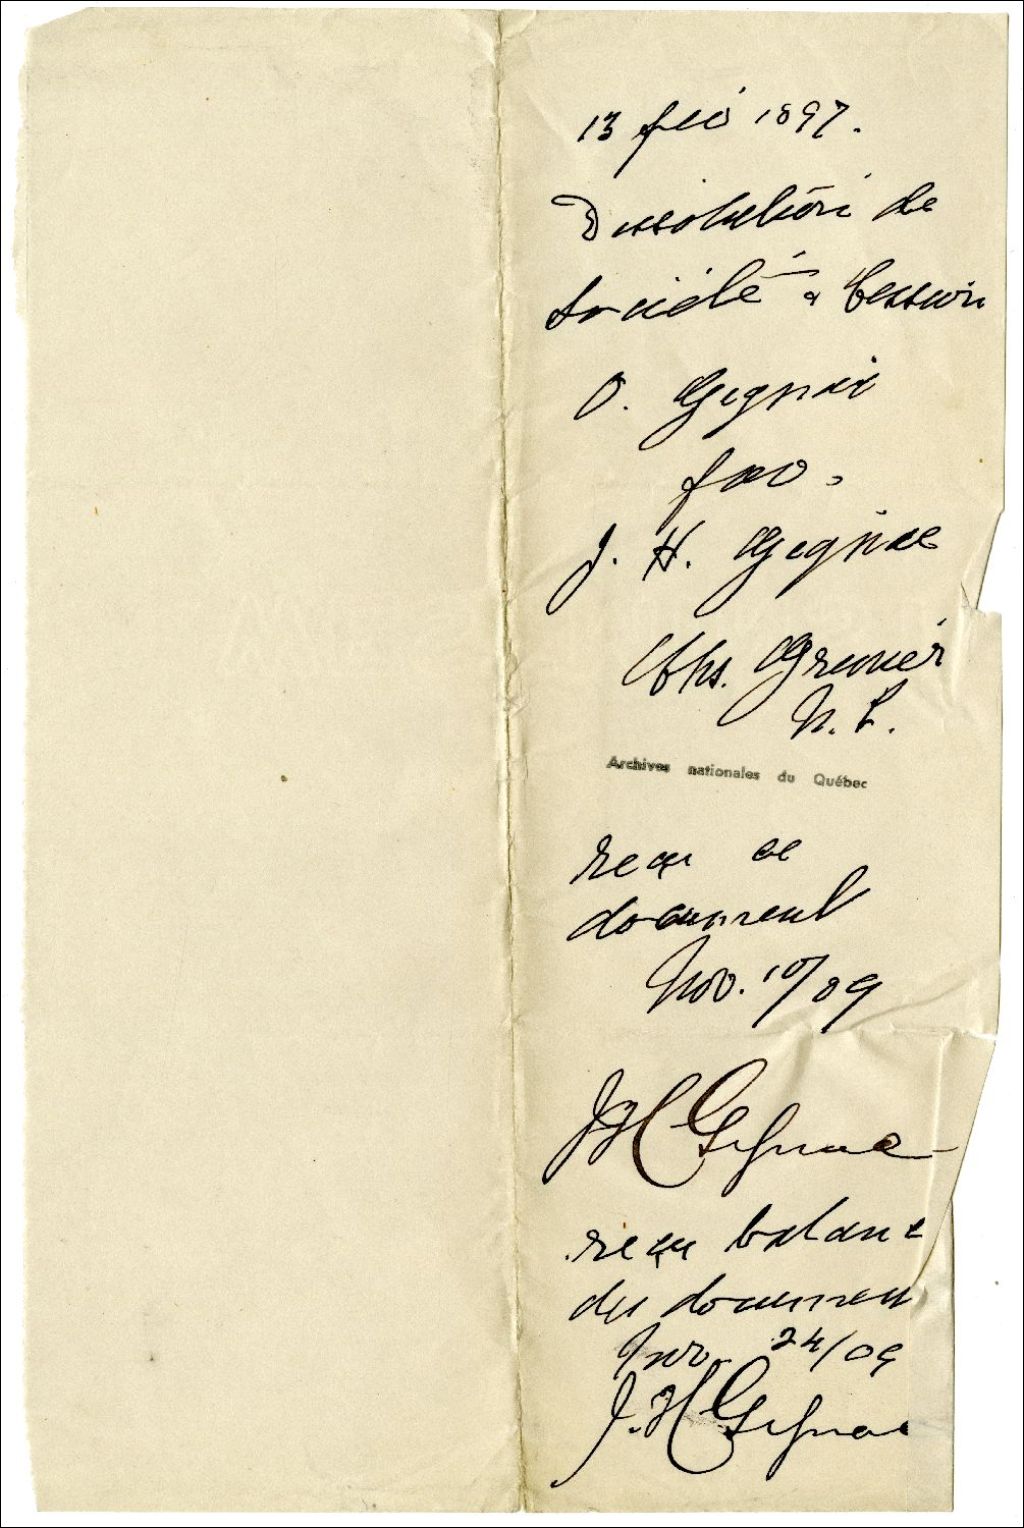 13 fév 1897.
Dissolution de
Société & Cession
O. Gignac
fav.
J. H. Gignac
Chs. Grenier
N. P.
Archives nationales du Québec
reçu ce
document
Nov. 10/09
JH Gignac
reçu balance
des document
Nov. 24/09
J. H Gignac